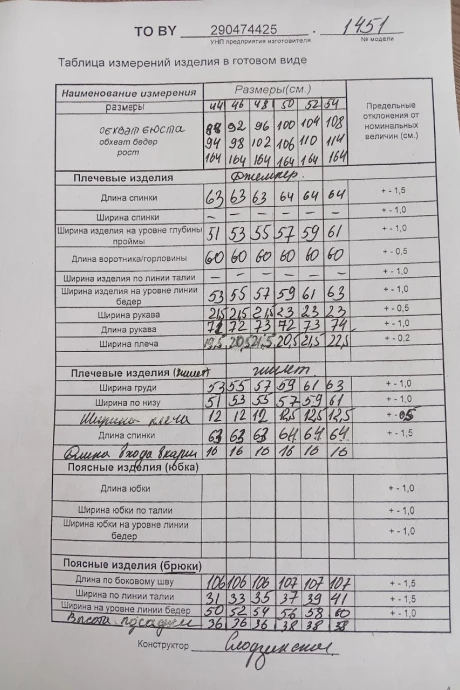 ТО BY 290474425 . 1451
УНП предприятия изготовителя № модели
Таблица измерений изделия в готовом виде
Наименование измерения Размеры(см.) Предельные отклонения от номинальных величин (см.)
размеры 44 46 48 50 52 54
обхват бюста 88 92 96 100 104 108
обхват бедер 94 98 102 106 110 114
рост 164 164 164 164 164 164
Плечевые изделия джемпер.
Длина спинки 63 63 63 64 64 64 + - 1,5
Ширина спинки – – – – – – + - 1,0
Ширина изделия на уровне глубины проймы 51 53 55 57 59 61 + - 1,0
Длина воротника/горловины 60 60 60 60 60 60 + - 0,5
Ширина изделия по линии талии – – – – – – + - 1,0
Ширина изделия на уровне линии бедер 53 55 57 59 61 63 + - 1,0
Ширина рукава 21,5 21,5 21,5 23 23 23 + - 0,5
Длина рукава 72 72 73 72 73 74 + - 1,0
Ширина плеча 19,5 20,5 21,5 20,5 21,5 22,5 + - 0,2
Плечевые изделия (жилет) жилет
Ширина груди 53 55 57 59 61 63 + - 1,0
Ширина по низу 51 53 55 57 59 61 + - 1,0
Ширина плеча 12 12 12 12,5 12,5 12,5 + - 0,5
Длина спинки 63 63 63 64 64 64 + - 1,5
Длина входа в карм 16 16 16 16 16 16
Поясные изделия (юбка)
Длина юбки + - 1,0
Ширина юбки по талии + - 1,0
Ширина юбки на уровне линии бедер + - 1,0
Поясные изделия (брюки)
Длина по боковому шву 106 106 106 107 107 107 + - 1,5
Ширина по линии талии 31 33 35 37 39 41 + - 1,5
Ширина на уровне линии бедер 50 52 54 56 58 60 + - 1,0
Высота посадки 36 36 36 38 38 38
Конструктор